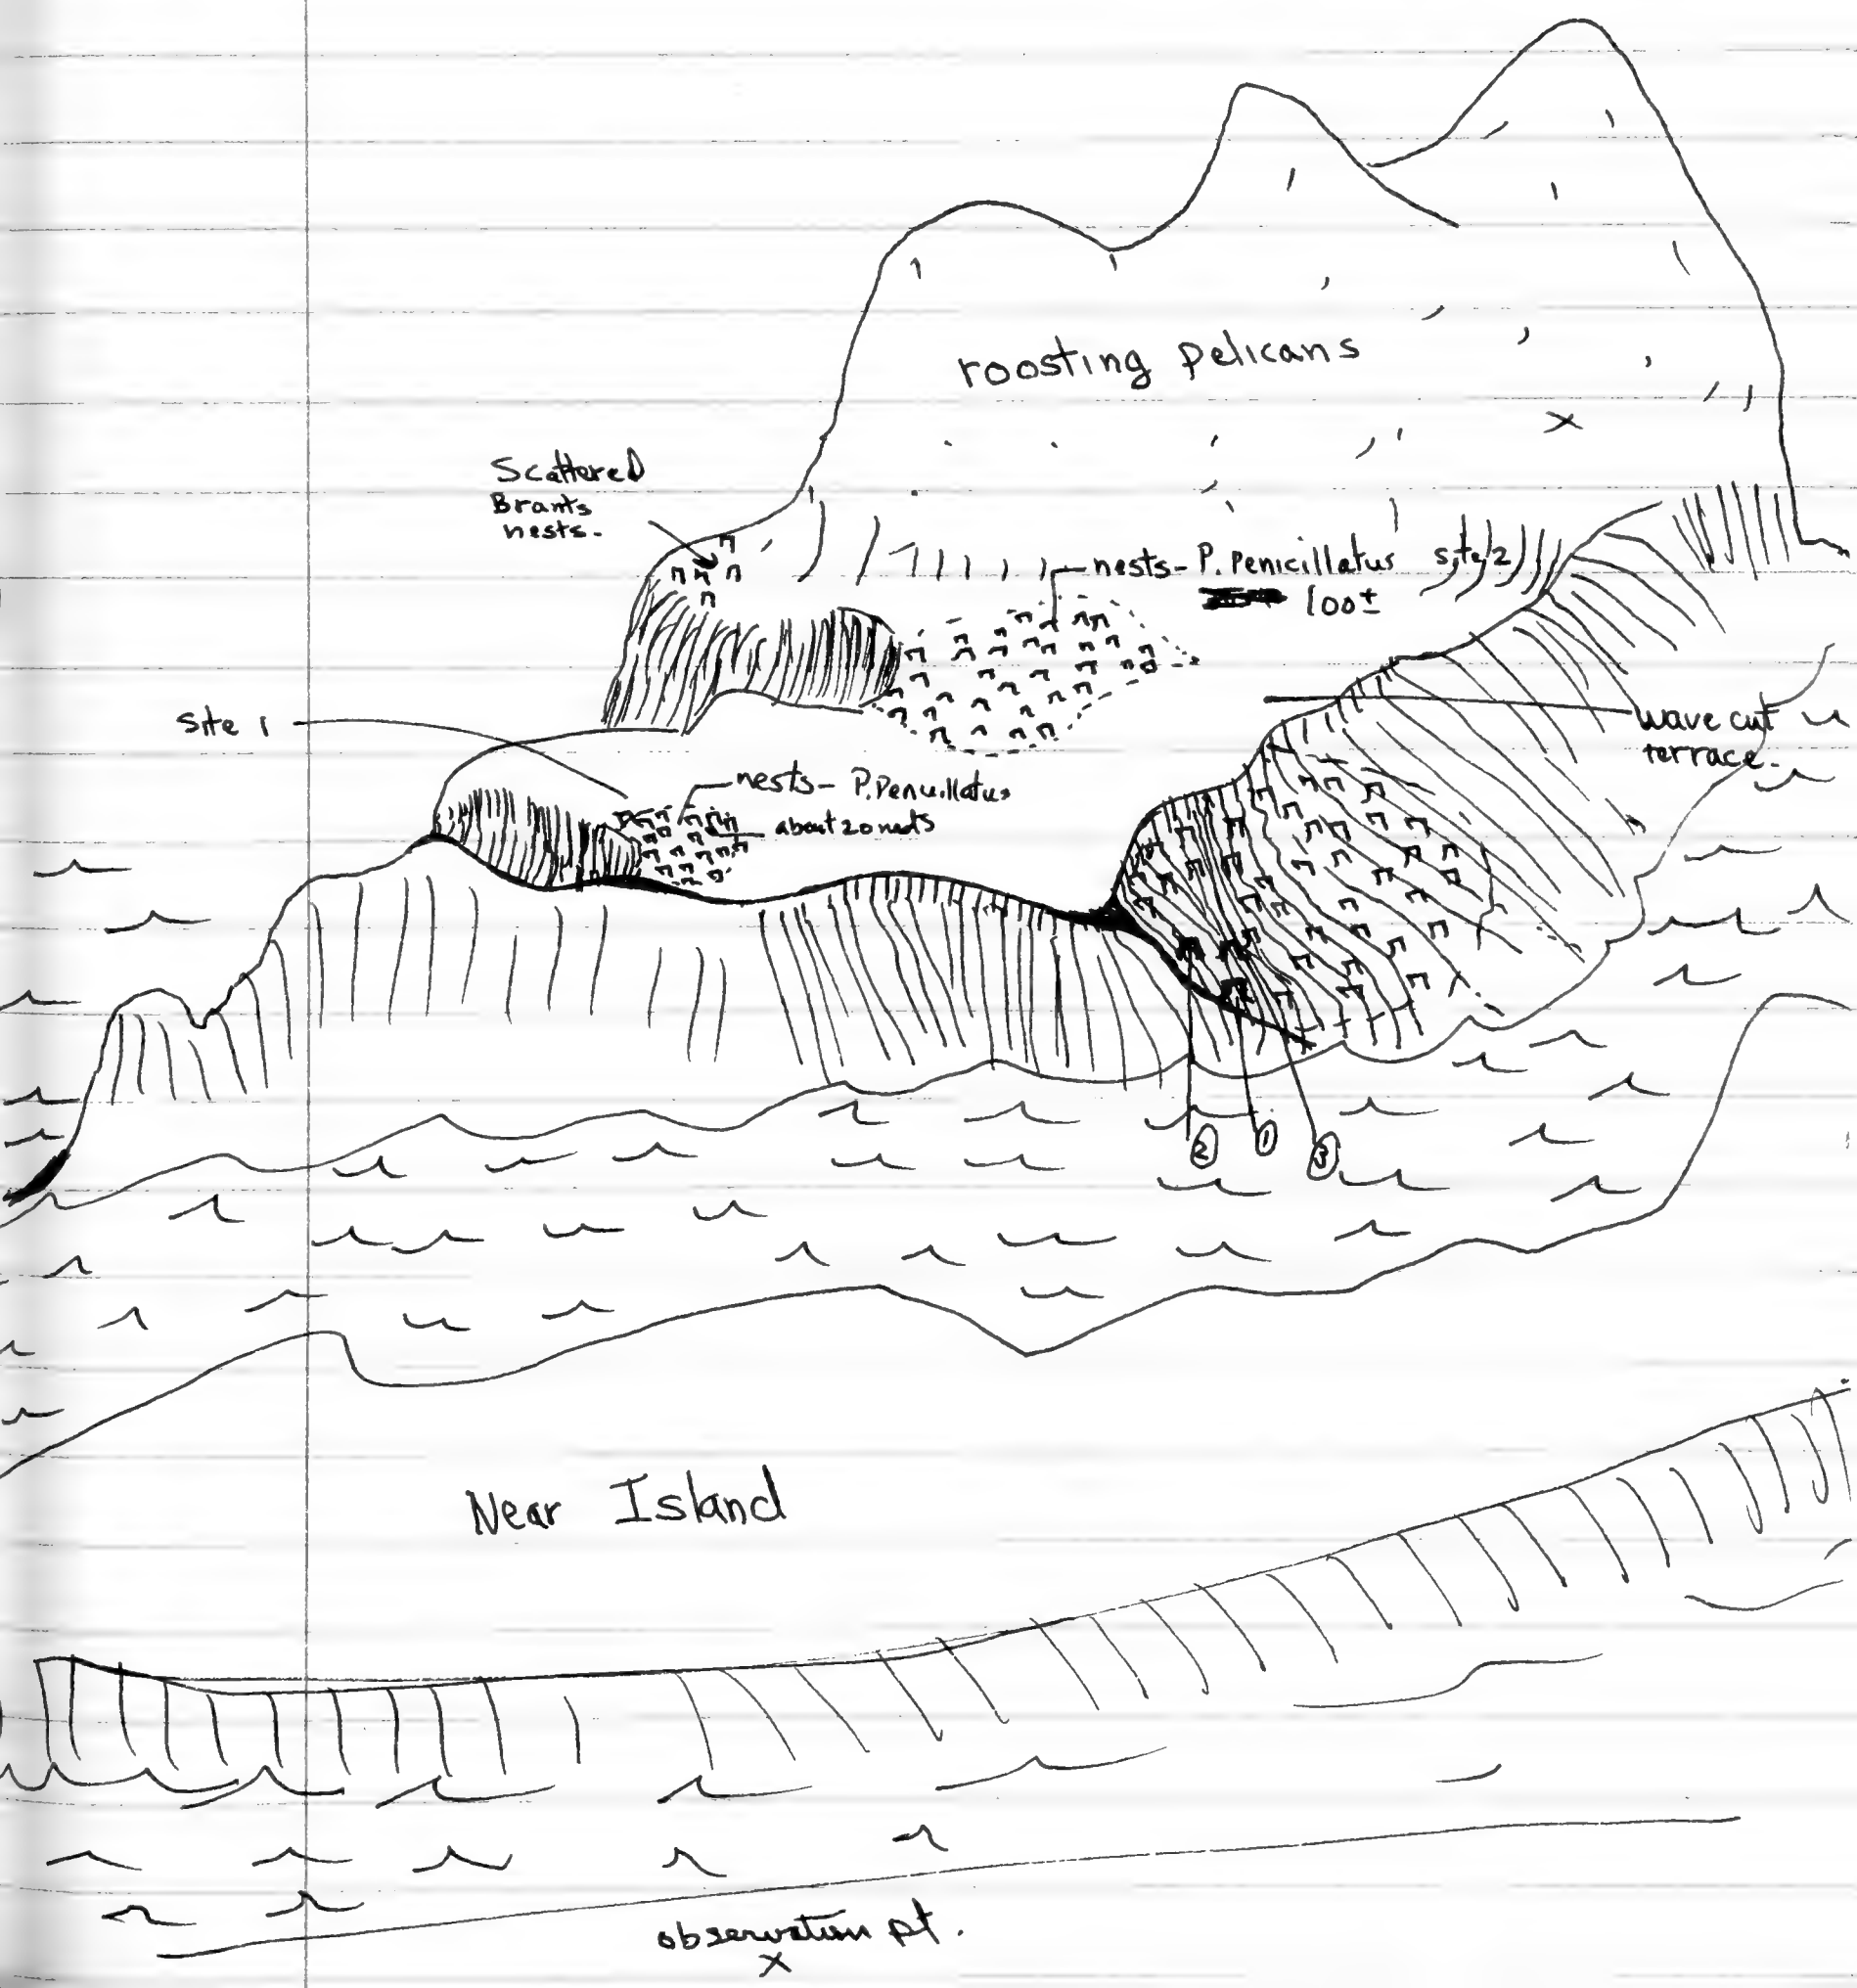 roosting pelicans
Scattered
Brants
nests.
nests- P. Penicillatus site 2
100±
Site 1
wave cut
terrace.
nests- P. Penicillatus
about 20 nests
2 1 3
Near Island
observation pt.
x